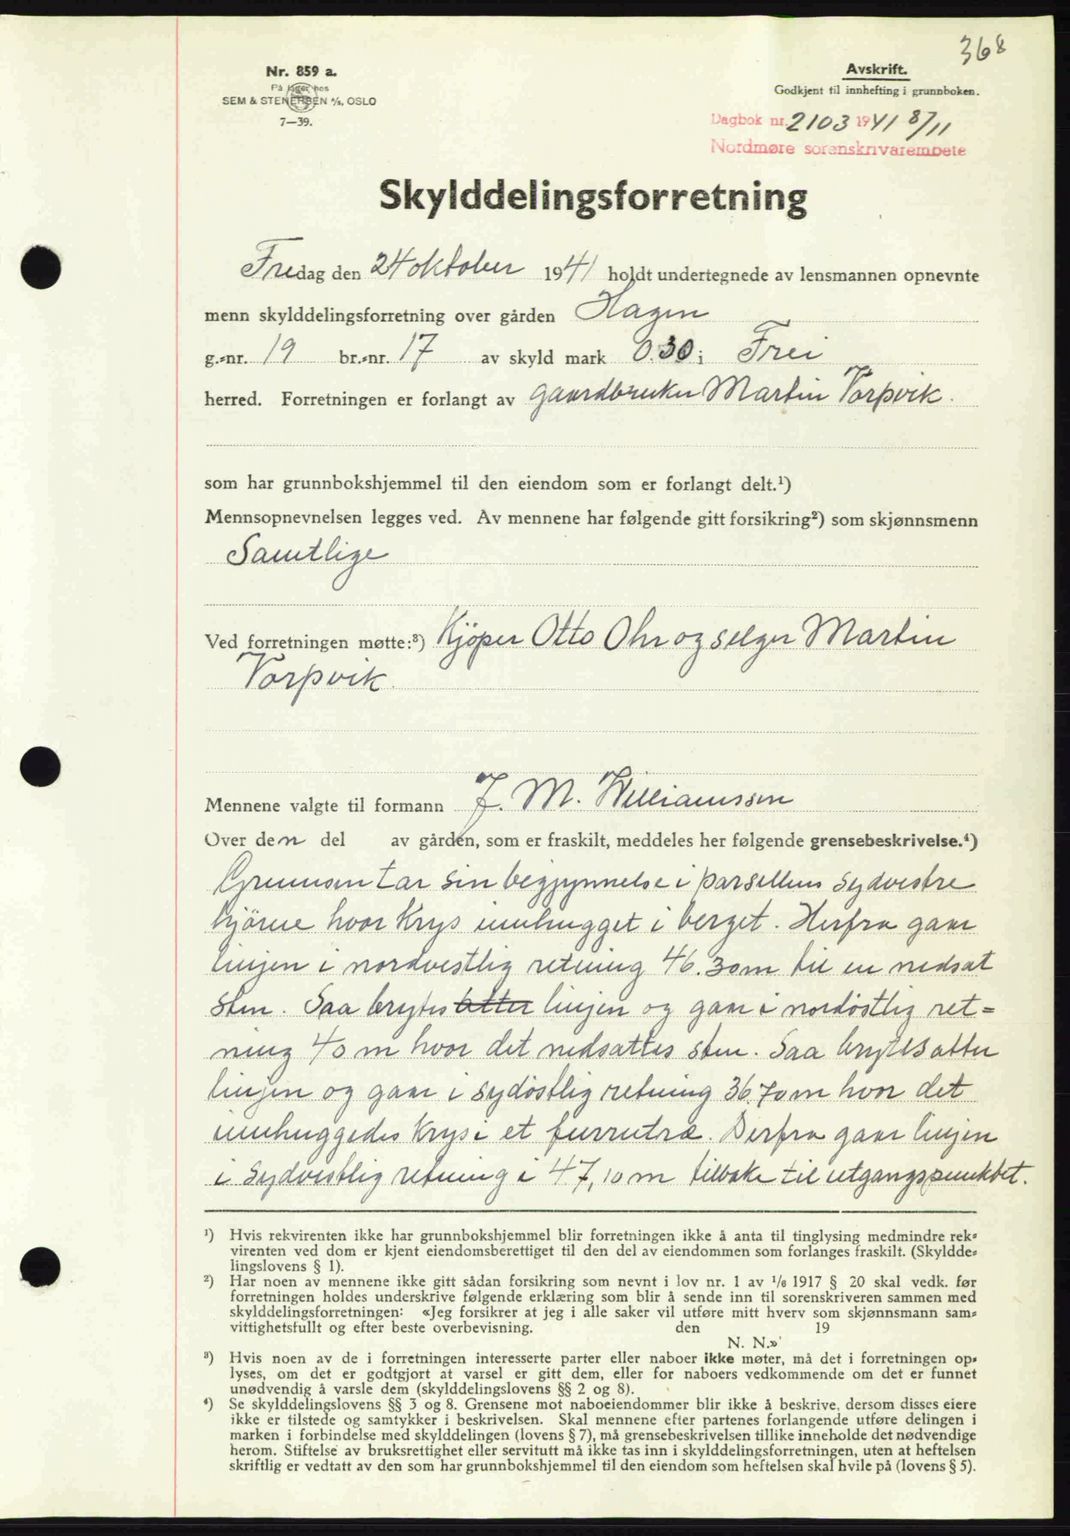 368
Nr. 859 a.
På lager hos
SEM & STENERSEN A/S, OSLO
7—39.
Avskrift.
Godkjent til innhefting i grunnboken.
Dagbok nr. 2103 1941 8/11
Nordmøre sorenskrivarembete
Skylddelingsforretning
Fredag den 24 oktober 1941 holdt undertegnede av lensmannen opnevnte
menn skylddelingsforretning over gården Hagen
g.-nr. 19 br.-nr. 17 av skyld mark 0.30 i Frei
herred. Forretningen er forlangt av gaardbruker Martin Vorpvik.
som har grunnbokshjemmel til den eiendom som er forlangt delt.¹)
Mennsopnevnelsen legges ved. Av mennene har følgende gitt forsikring²) som skjønnsmenn
Samtlige
Ved forretningen møtte:³) Kjöper Otto Ohr og selger Martin
Vorpvik.
Mennene valgte til formann J. M. Williamssen
Over den del av gården, som er fraskilt, meddeles her følgende grensebeskrivelse.⁴)
Grensen tar sin begjynnelse i parsellens sydvestre
hjörne hvor Krys innhugget i berget. Herfra gaar
linjen i nordvestlig retning 46.30 m til en nedsat
sten. Saa brytes atter linjen og gaar i nordöstlig ret=
ning 40 m hvor det nedsattes sten. Saa brytes atter
linjen og gaar i sydöstlig retning 36.70 m hvor det
innhuggedes Krys i et furrutræ. Derfra gaar linjen
i Sydvestlig retning i 47,10 m tilbake til utgangspunktet.
¹) Hvis rekvirenten ikke har grunnbokshjemmel blir forretningen ikke å anta til tinglysing medmindre rek-
virenten ved dom er kjent eiendomsberettiget til den del av eiendommen som forlanges fraskilt. (Skyldde-
lingslovens § 1).
²) Har noen av mennene ikke gitt sådan forsikring som nevnt i lov nr. 1 av 1/6 1917 § 20 skal vedk. før
forretningen holdes underskrive følgende erklæring som blir å sende inn til sorenskriveren sammen med
skylddelingsforretningen: «Jeg forsikrer at jeg i alle saker vil utføre mitt hverv som skjønnsmann sam-
vittighetsfullt og efter beste overbevisning. den 19
N. N.»
³) Hvis noen av de i forretningen interesserte parter eller naboer ikke møter, må det i forretningen op-
lyses, om det er godtgjort at varsel er gitt dem, eller for naboers vedkommende om det er funnet
unødvendig å varsle dem (skylddelingslovens §§ 2 og 8).
⁴) Se skylddelingslovens §§ 3 og 8. Grensene mot naboeiendommer blir ikke å beskrive, dersom disses eiere
ikke er tilstede og samtykker i beskrivelsen. Skal mennene efter partenes forlangende utføre delingen i
marken i forbindelse med skylddelingen (lovens § 7), må grensebeskrivelsen tillike inneholde det nødvendige
herom. Stiftelse av bruksrettighet eller servitutt må ikke tas inn i skylddelingsforretningen, uten at heftelsen
skriftlig er vedtatt av den som har grunnbokshjemmel til den eiendom som heftelsen skal hvile på (lovens § 5).